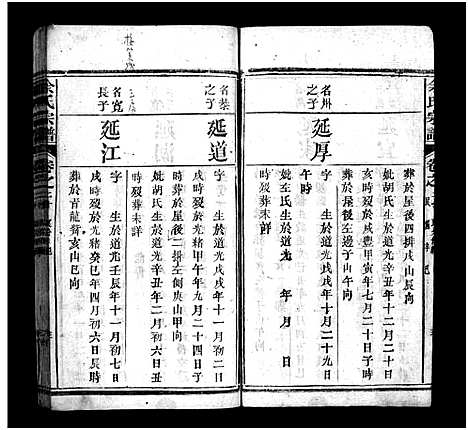 余氏宗譜
葬於屋後四排戌山辰向
名州之子
延厚
字 生於道光戊戌年十月二十九
亥時歿於咸豐甲寅年七月二十日
葬於屋後左邊子山午向
妣胡氏生於道光 年十二月二十日
妣左氏生於道光 年 月 日
午時
時歿葬未詳
名榮之子
延道
字 生於道光戊戌年十一月初二日
戌時歿於光緒甲午年九月二十四日子
時葬於屋後二排左側庚山甲向
妣胡氏生於道光辛丑年二月初六日丑
時歿葬未詳
名寬長子
延江
字 生於道光壬辰年十一月初七日
戌時歿於光緒癸巳年四月初六日辰時
葬於青龍嘴亥山巳向
余氏宗譜
卷之三